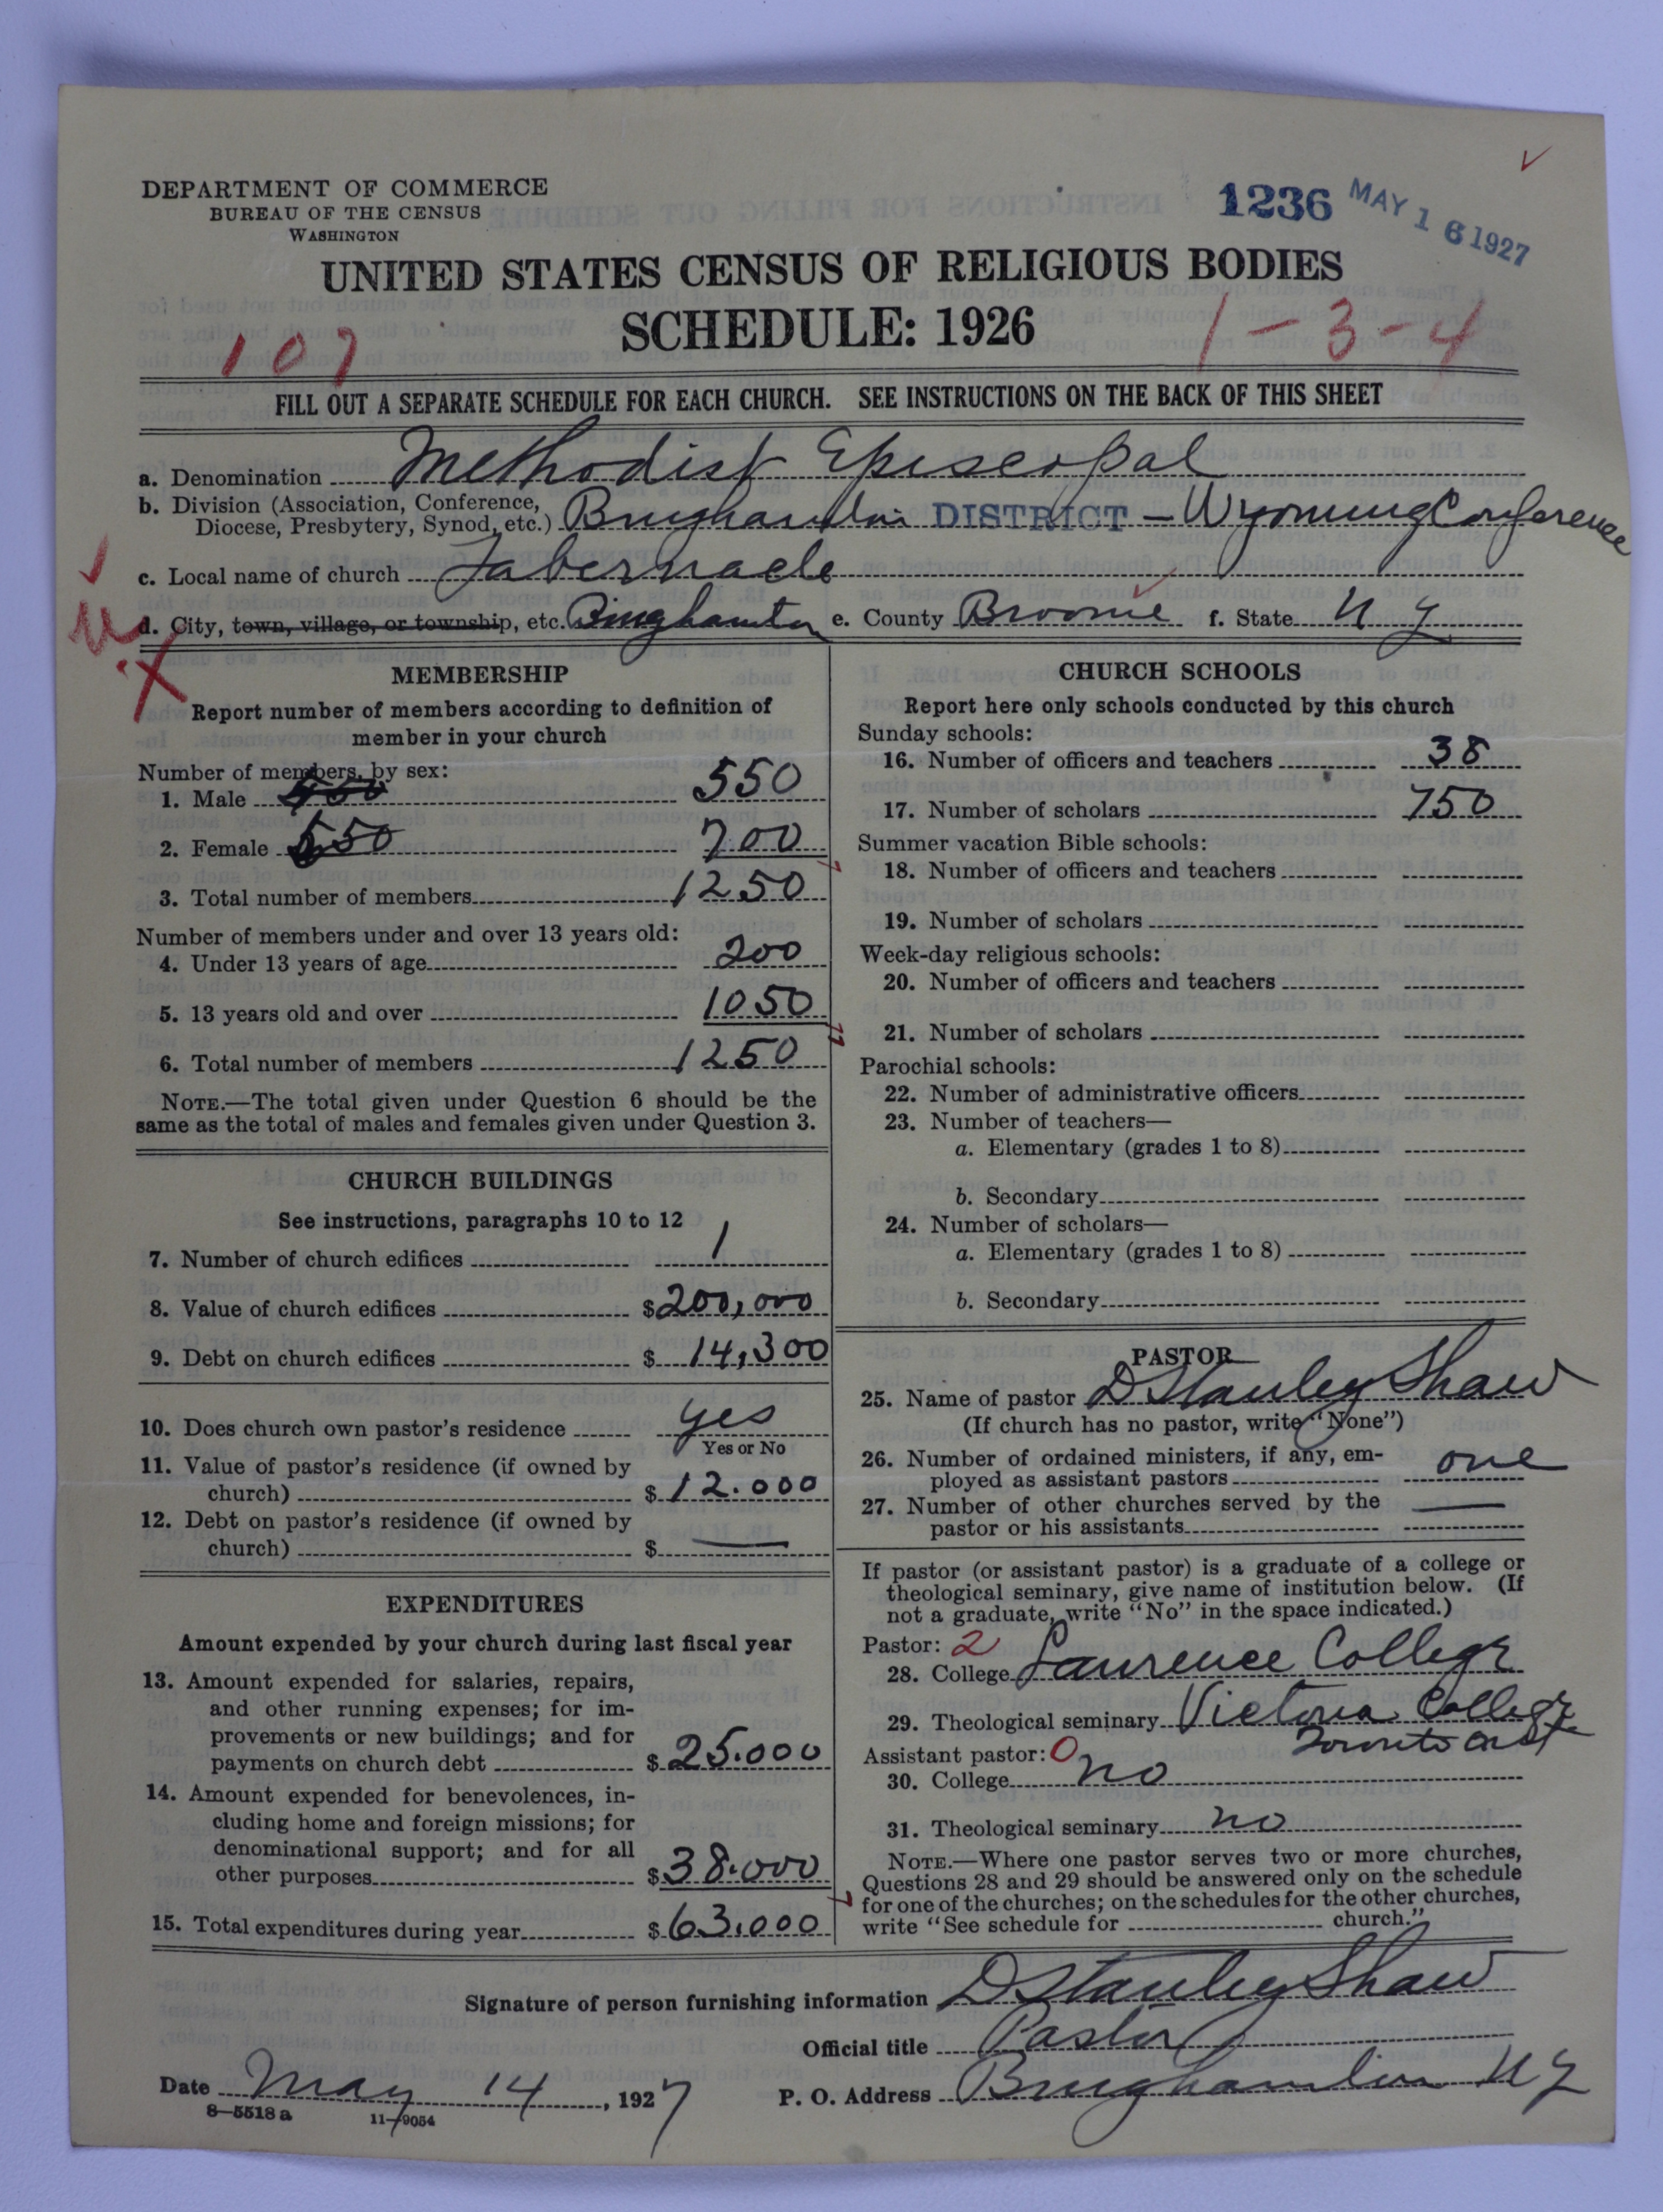 DEPARTMENT OF COMMERCE
BUREAU OF THE CENSUS
WASHINGTON
1236 MAY 16 1927
UNITED STATES CENSUS OF RELIGIOUS BODIES
SCHEDULE: 1926
107
1-3-4
FILL OUT A SEPARATE SCHEDULE FOR EACH CHURCH. SEE INSTRUCTIONS ON THE BACK OF THIS SHEET
a. Denomination Methodist Episcopal
b. Division (Association, Conference,
Diocese, Presbytery, Synod, etc.) Binghamton DISTRICT - Wyoming Conference
c. Local name of church Tabernacle
d. City, town, village, or township, etc. Binghamton e. County Broome f. State N Y
MEMBERSHIP
Report number of members according to definition of
member in your church
Number of members, by sex:
1. Male 550
2. Female 550 700
3. Total number of members 1250
Number of members under and over 13 years old:
4. Under 13 years of age 200
5. 13 years old and over 1050
6. Total number of members 1250
NOTE.—The total given under Question 6 should be the
same as the total of males and females given under Question 3.
CHURCH BUILDINGS
See instructions, paragraphs 10 to 12
7. Number of church edifices 1
8. Value of church edifices $200,000
9. Debt on church edifices $14,300
10. Does church own pastor's residence yes
Yes or No
11. Value of pastor's residence (if owned by
church) $12.000
12. Debt on pastor's residence (if owned by
church) $ —
EXPENDITURES
Amount expended by your church during last fiscal year
13. Amount expended for salaries, repairs,
and other running expenses; for im-
provements or new buildings; and for
payments on church debt $25.000
14. Amount expended for benevolences, in-
cluding home and foreign missions; for
denominational support; and for all
other purposes $38.000
15. Total expenditures during year $63.000
CHURCH SCHOOLS
Report here only schools conducted by this church
Sunday schools:
16. Number of officers and teachers 38
17. Number of scholars 750
Summer vacation Bible schools:
18. Number of officers and teachers
19. Number of scholars
Week-day religious schools:
20. Number of officers and teachers
21. Number of scholars
Parochial schools:
22. Number of administrative officers
23. Number of teachers—
a. Elementary (grades 1 to 8)
b. Secondary
24. Number of scholars—
a. Elementary (grades 1 to 8)
b. Secondary
PASTOR
25. Name of pastor D Stanley Shaw
(If church has no pastor, write "None")
26. Number of ordained ministers, if any, em-
ployed as assistant pastors one
27. Number of other churches served by the
pastor or his assistants —
If pastor (or assistant pastor) is a graduate of a college or
theological seminary, give name of institution below. (If
not a graduate, write "No" in the space indicated.)
Pastor: 2
28. College Lawrence College
29. Theological seminary Victoria College
Toronto
Assistant pastor: 0
30. College no
31. Theological seminary no
NOTE.—Where one pastor serves two or more churches,
Questions 28 and 29 should be answered only on the schedule
for one of the churches; on the schedules for the other churches,
write "See schedule for church."
Signature of person furnishing information D Stanley Shaw
Official title Pastor
Date May 14, 1927 P. O. Address Binghamton N Y
8—5518 a 11—9054